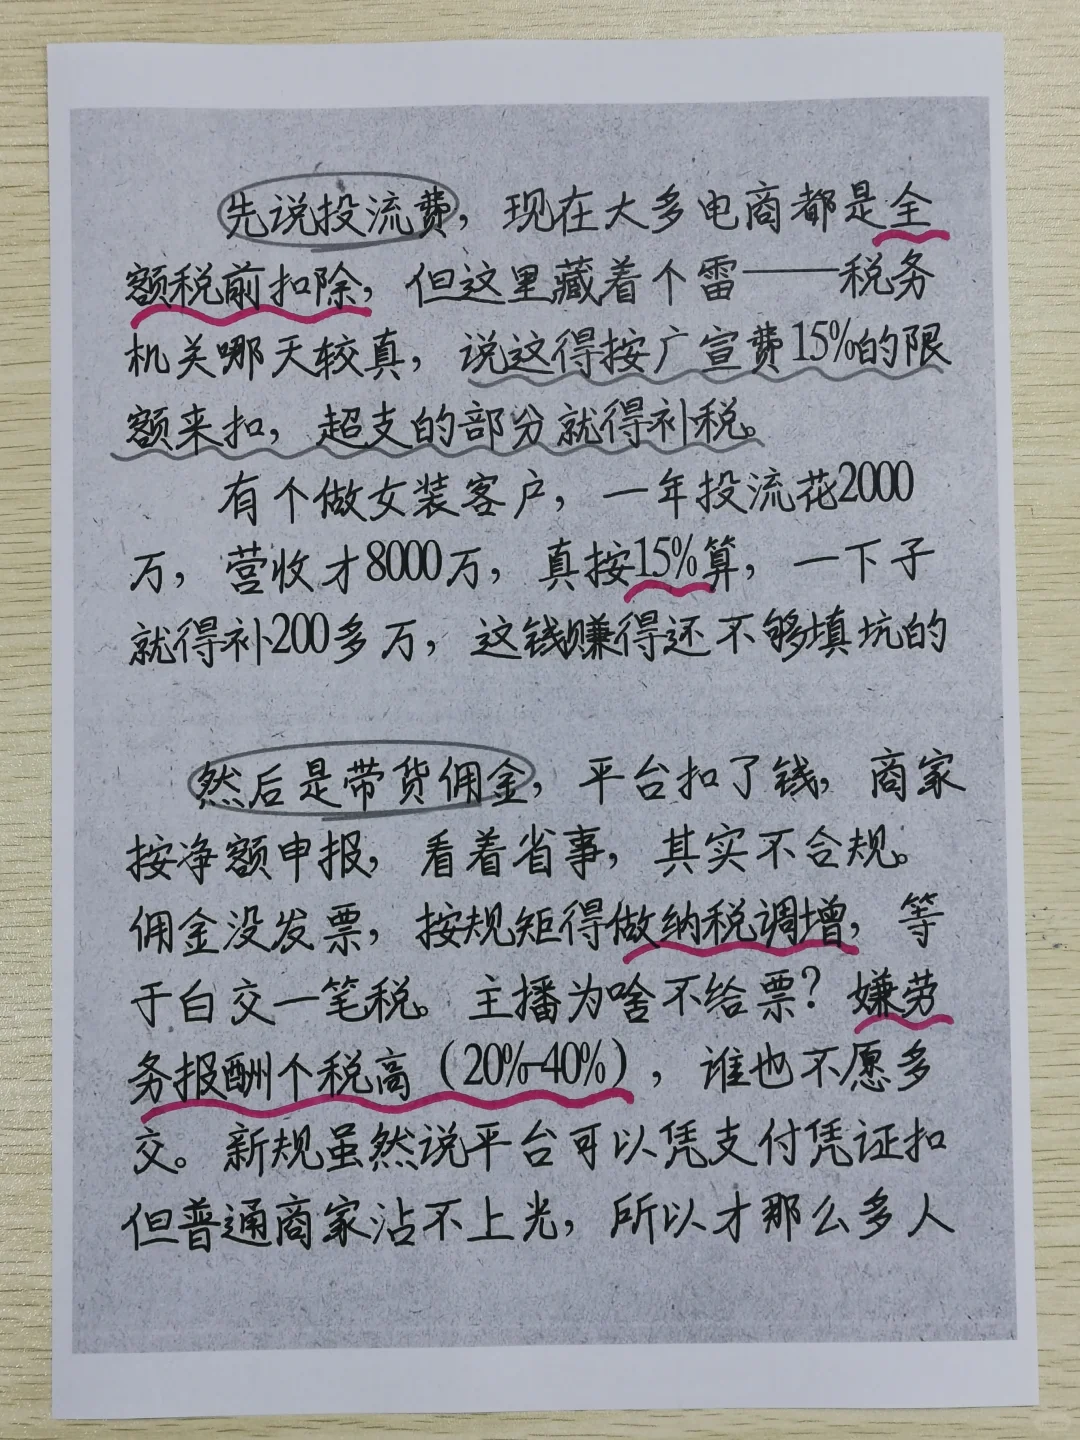 先说投流费，现在太多电商都是全
额税前扣除，但这里藏着个雷——税务
机关哪天较真，说这得按广宣费15%的限
额来扣，超支的部分就得补税。
有个做女装客户，一年投流花2000
万，营收才8000万，真按15%算，一下子
就得补200多万，这钱赚得还不够填坑的
然后是带货佣金，平台扣了钱，商家
按净额申报，看着省事，其实不合规。
佣金没发票，按规矩得做纳税调增，等
于白交一笔税。主播为啥不给票？嫌劳
务报酬个税高（20%-40%），谁也不愿多
交。新规虽然说平台可以凭支付凭证扣
但普通商家沾不上光，所以才那么多人